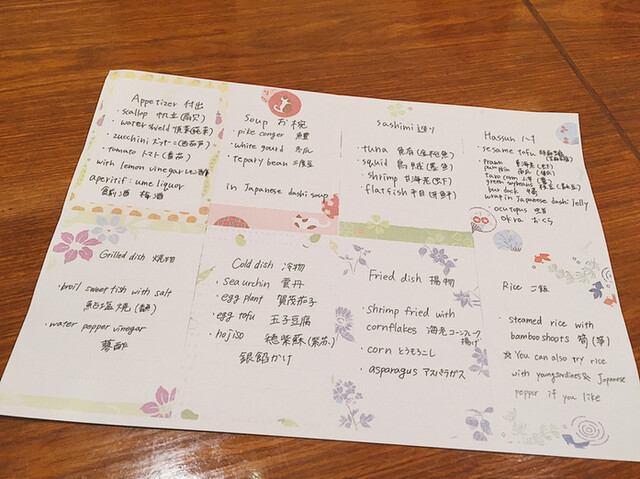 Appetizer 付出
・scallop 帆立
・water shield 順菜(莼菜)
・zucchini ズッキーニ(西葫芦)
・tomato トマト(番茄)
with lemon vinegar
aperitif : ume liquor
餉酒 梅酒
Soup お椀
・pike conger 鱧
・white gourd 冬瓜
・tepary bean 三度豆
in Japanese dashi soup
Sashimi 造り
・tuna 鮪(金枪鱼)
・squid 烏賊(墨鱼)
・shrimp 車海老(大下)
・flatfish 平目(牙鲆)
Hassun 八寸
・sesame tofu
prawn 車海老
pumpkin 南瓜
taro corn
green soybeans 枝豆
burdock
wrap in Japanese dashi jelly
・octupus
okra おくら
Grilled dish 焼物
・broil sweet fish with salt
鮎塩焼
・water pepper vinegar
蓼酢
Cold dish 冷物
・sea urchin 雲丹
・egg plant 賀茂茄子
・egg tofu 玉子豆腐
・hojiso 穂紫蘇
銀餡かけ
Fried dish 揚物
・shrimp fried with
cornflakes 海老コーンフレーク
揚げ
・corn とうもろこし
・asparagus アスパラガス
Rice ご飯
・steamed rice with
bamboo shoots 筍(笋)
☆ You can also try rice
with young sardines & Japanese
pepper if you like